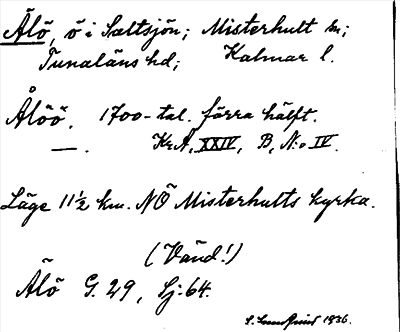 Älö, ö i Saltsjön; Misterhult sn;
Tunaläns hd; Kalmar l.
Ålöö. 1700-tal. förra hälft.
— . Kr.A, XXIV, B, N:o IV.
Läge 11 1/2 km. NÖ Misterhults kyrka.
(Vänd!)
Älö G. 29, Sj: 64.
S. Lundquist 1926.